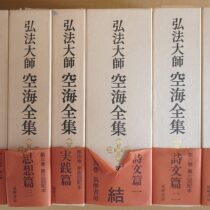 弘法大師
空海全集
思想篇
弘法大師
空海全集
実践篇
弘法大師
空海全集
詩文篇 一
結
弘法大師
空海全集
詩文篇 二